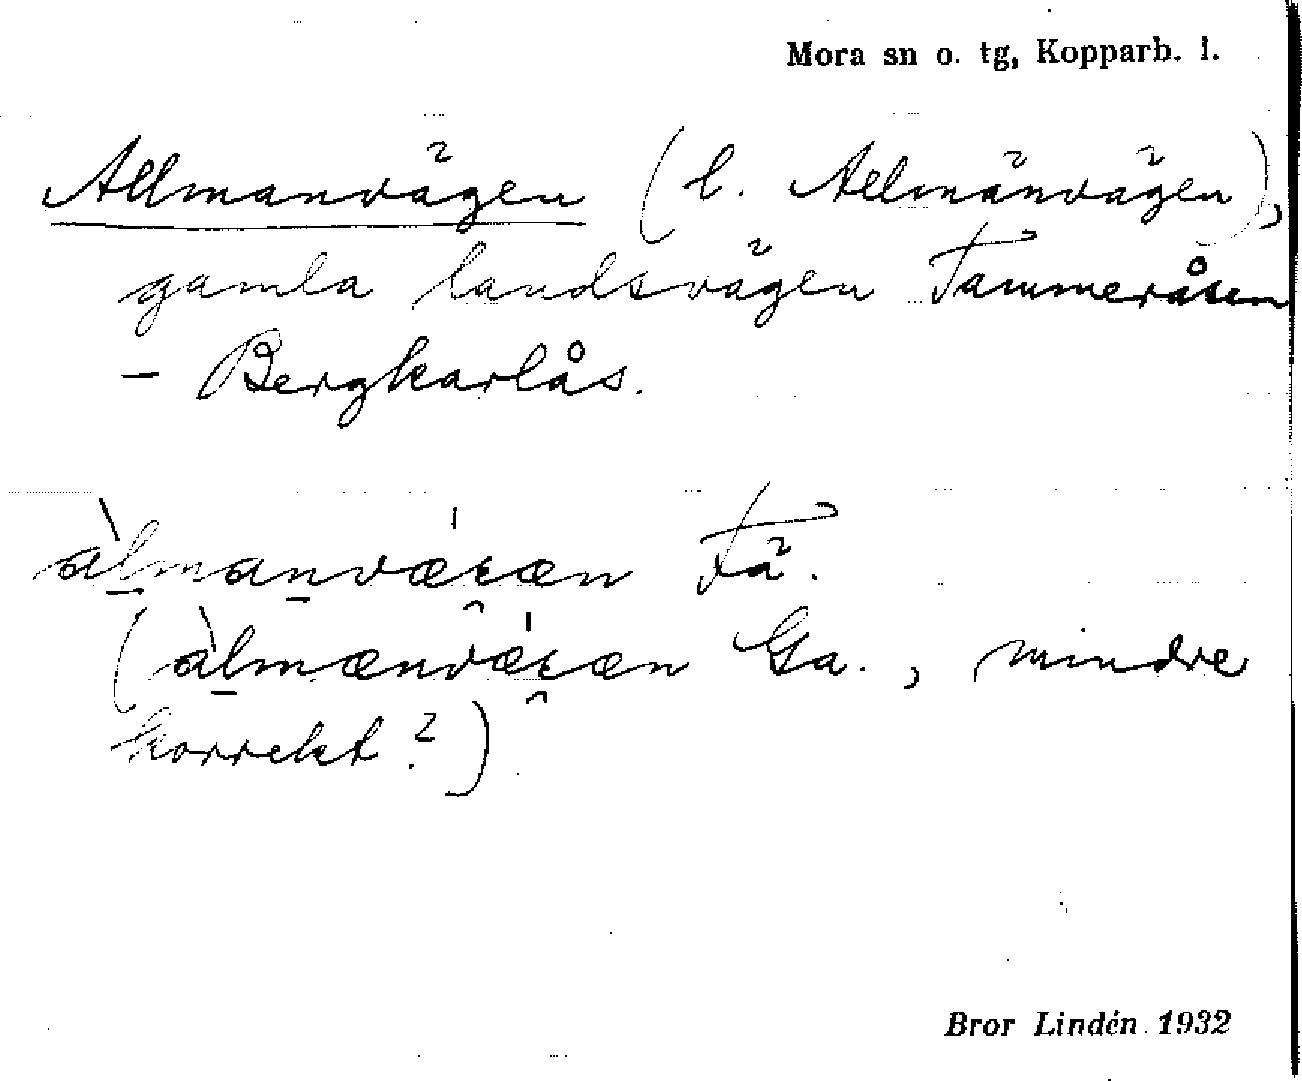 Mora sn o. tg, Kopparb. l.
Allmanvägen (l. Allmänvägen),
gamla landsvägen Tammeråsen
- Bergkarlås.
àlmanvǽɛæn Fä.
(àlmænvǽɛæn Ga., mindre
korrekt?)
Bror Lindén 1932